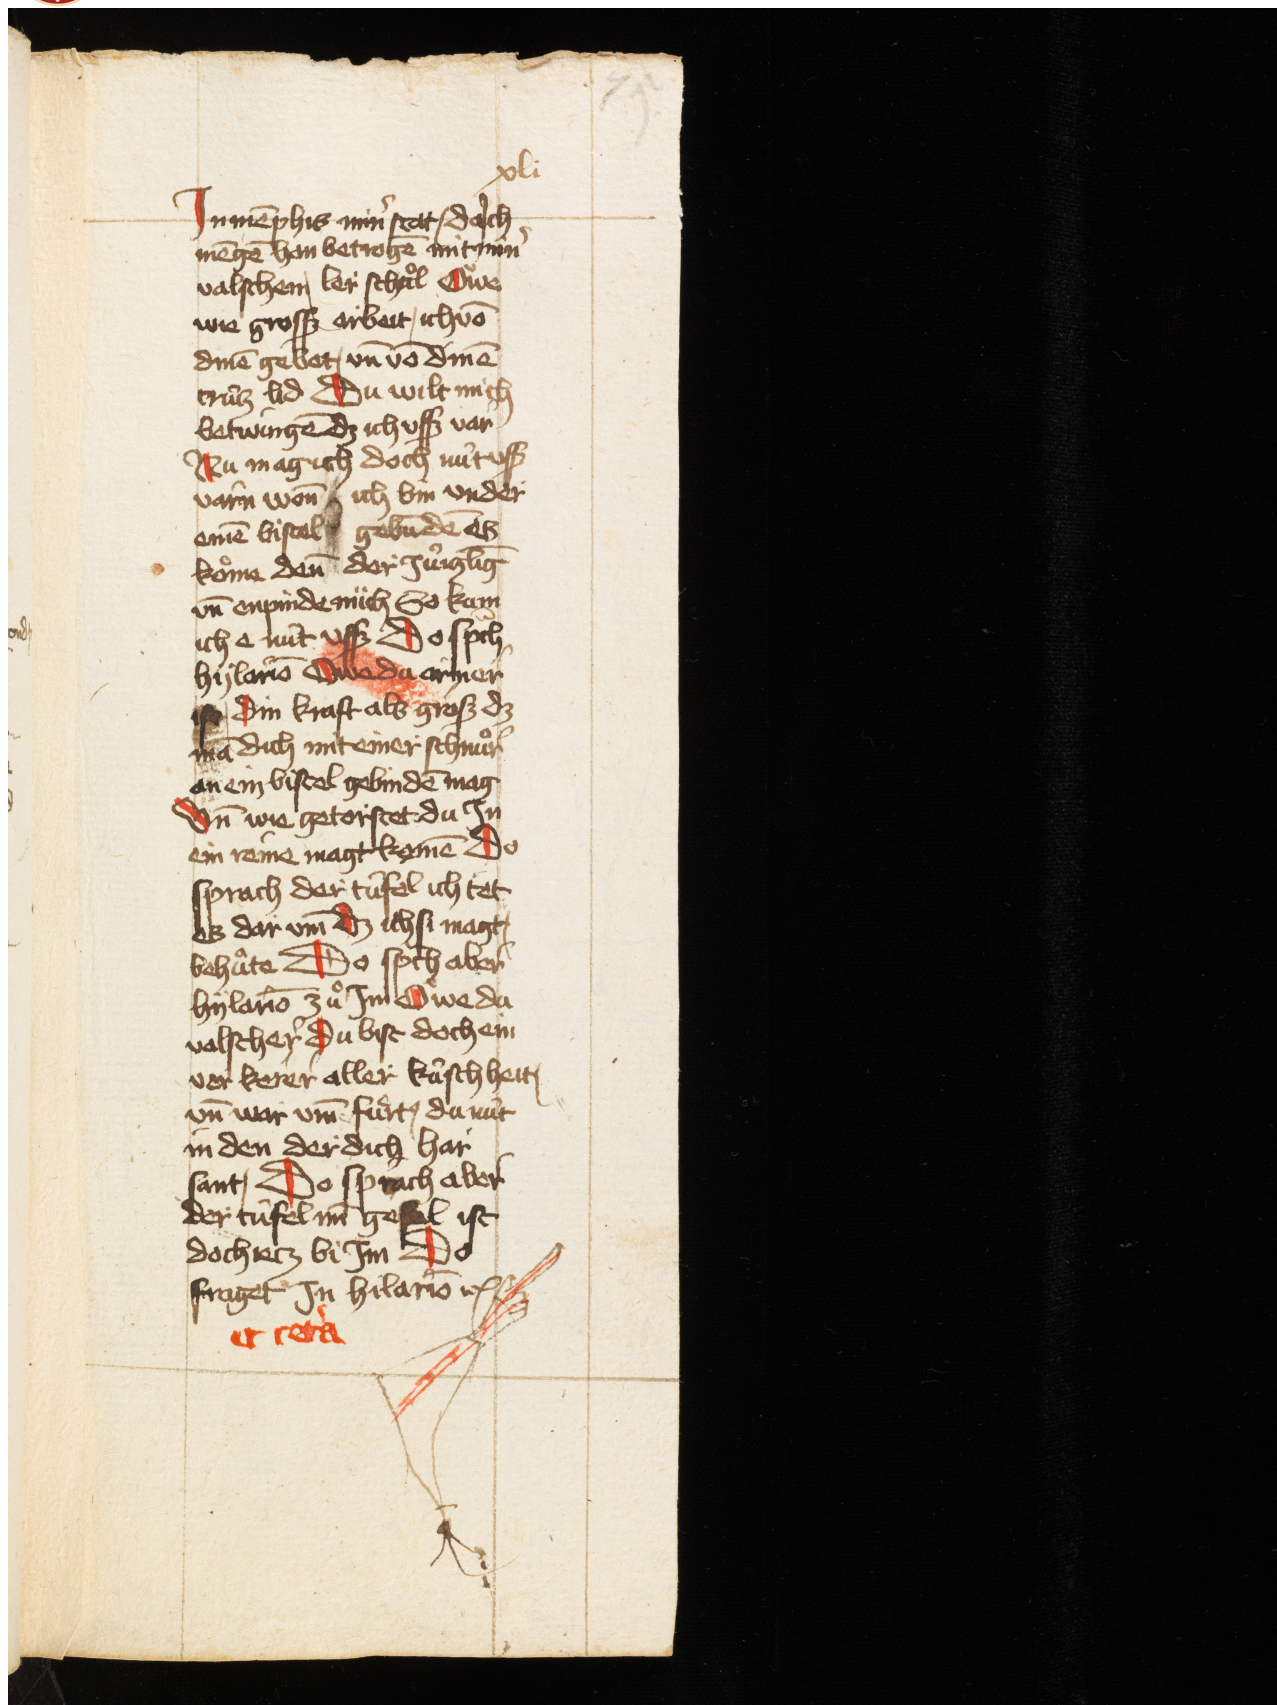 xli
In mēphis min̾ stat / do ich
mēgē han betrogē mit min̾
valschem ler schuͦl Owe
wie grosß arbeit / ich vō
dinē gebet / vn̄ vō dinē
truͤtz lid Du wilt mich
betwingē dz ich vsß var
Nu mag ich doch nuͤt vsß
varn won̄ ich bin vnder
einē bistel gebūdē es
koͤme den̄ der Iuͤnglīg
vn̄ enpinde mich So kum
ich e nuͤt vsß Do spͨh
hylariō Owe du armer
ist din kraft als gross dz
mā dich mit einer schnuͦr
an ein bistel gebindē mag
Vn̄ wie getorstet du In
ein reine magt komē Do
sprach der tuͤfel ich tet
es dar vm̄ dz ich si magt /
behuͤte Do spͨh aber
hylariō zuͦ Im Owe du
valscher Du bist doch ein
ver kerer aller kuͤschheit /
vn̄ war vm̄ fuͤrt / du nuͤt
in den der dich har
sant / Do sprach aber
der tuͤfel min̄ gesel ist
doch ietz bi Im Do
fraget In hilariō
et cetera